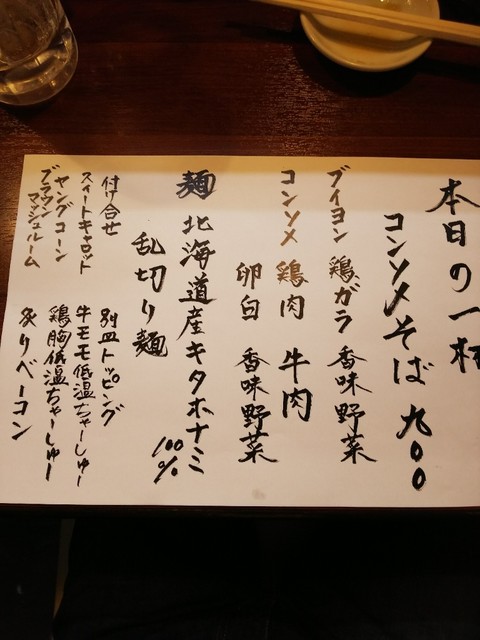 本日の一杯
コンソメそば 九〇〇
ブイヨン 鶏ガラ 香味野菜
コンソメ 鶏肉 牛肉
卵白 香味野菜
麺 北海道産キタホナミ 100%
乱切り麺
付け合せ
スイートキャロット
ヤングコーン
ブラウンマッシュルーム
別皿トッピング
牛モモ低温ちゃーしゅー
鶏胸低温ちゃーしゅー
炙りベーコン